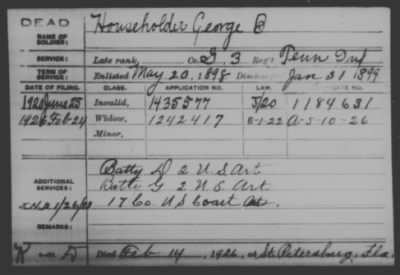 DEAD
NAME OF SOLDIER: Householder George B
SERVICE: Late rank, Co. G, 3 Reg't Tenn Inf
TERM OF SERVICE: Enlisted May 20, 1898 Discharged Jan 31 1899
DATE OF FILING. CLASS. APPLICATION NO. LAW. CERTIFICATE NO.
1920 June 25 Invalid, 1435577 5/20 1184631
1926 Feb 24 Widow, 1242417 6-1-22 A-5-10-26
Minor,
ADDITIONAL SERVICES:
Batty D 2 U.S Art
Batty G 2 U.S Art
17 Co. U S Coast Art.
REMARKS:
Died Feb 14, 1926, at St. Petersburg, Fla.